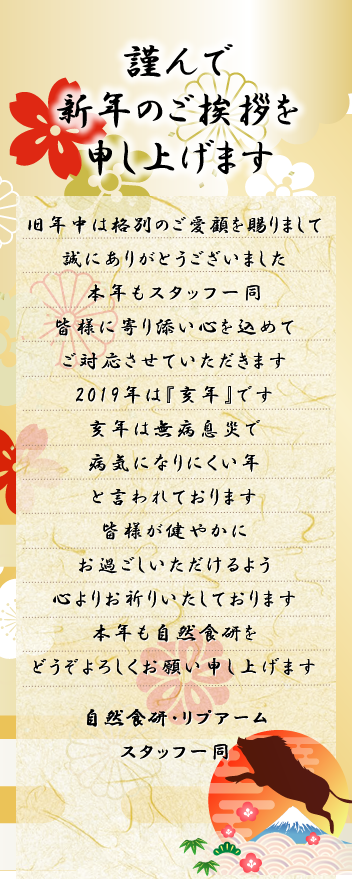 謹んで
新年のご挨拶を
申し上げます
旧年中は格別のご愛顧を賜りまして
誠にありがとうございました
本年もスタッフ一同
皆様に寄り添い心を込めて
ご対応させていただきます
2019年は『亥年』です
亥年は無病息災で
病気になりにくい年
と言われております
皆様が健やかに
お過ごしいただけるよう
心よりお祈りいたしております
本年も自然食研を
どうぞよろしくお願い申し上げます
自然食研・リブアーム
スタッフ一同